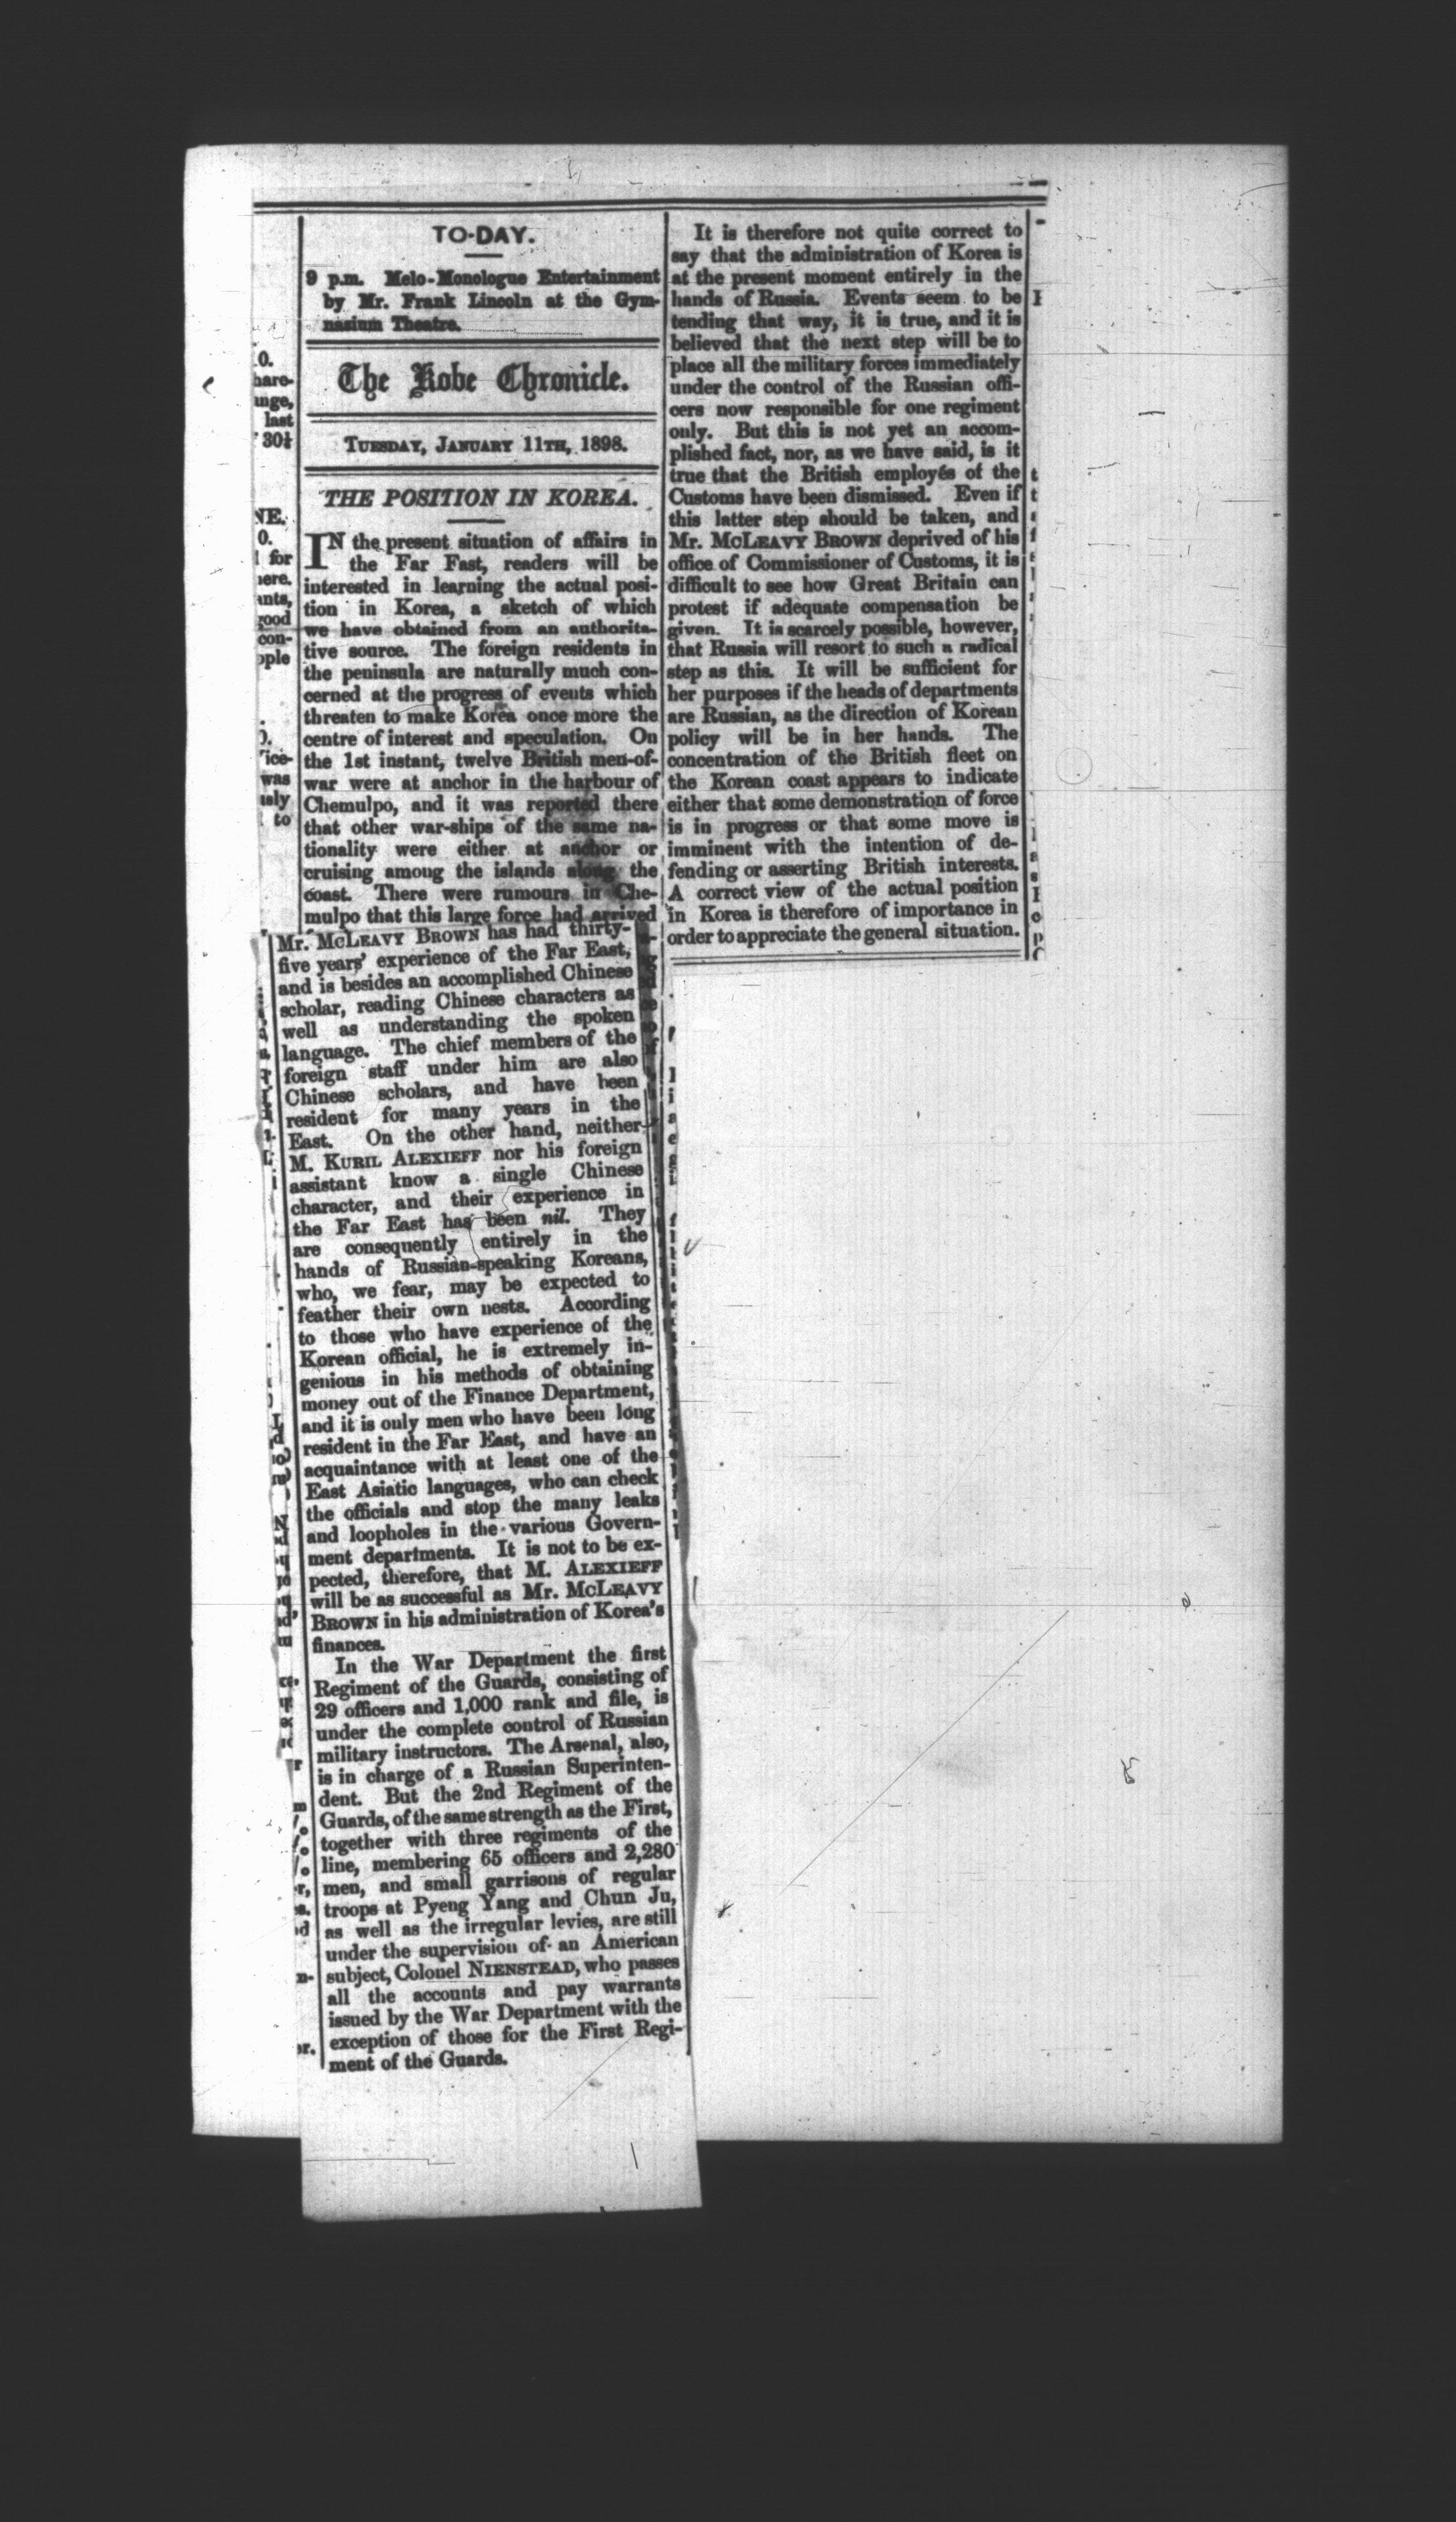 TO-DAY.
9 p.m. Melo-Monologue Entertainment
by Mr. Frank Lincoln at the Gym-
nasium Theatre.
The Kobe Chronicle.
TUESDAY, JANUARY 11TH, 1898.
THE POSITION IN KOREA.
IN the present situation of affairs in
the Far Fast, readers will be
interested in learning the actual posi-
tion in Korea, a sketch of which
we have obtained from an authorita-
tive source. The foreign residents in
the peninsula are naturally much con-
cerned at the progress of events which
threaten to make Korea once more the
centre of interest and speculation. On
the 1st instant, twelve British men-of-
war were at anchor in the harbour of
Chemulpo, and it was reported there
that other war-ships of the same na-
tionality were either at anchor or
cruising among the islands along the
coast. There were rumours in Che-
mulpo that this large force had arrived
Mr. MCLEAVY BROWN has had thirty-
five years' experience of the Far East,
and is besides an accomplished Chinese
scholar, reading Chinese characters as
well as understanding the spoken
language. The chief members of the
foreign staff under him are also
Chinese scholars, and have been
resident for many years in the
East. On the other hand, neither
M. KURIL ALEXIEFF nor his foreign
assistant know a single Chinese
character, and their experience in
the Far East has been nil. They
are consequently entirely in the
hands of Russian-speaking Koreans,
who, we fear, may be expected to
feather their own nests. According
to those who have experience of the
Korean official, he is extremely in-
genious in his methods of obtaining
money out of the Finance Department,
and it is only men who have been long
resident in the Far East, and have an
acquaintance with at least one of the
East Asiatic languages, who can check
the officials and stop the many leaks
and loopholes in the various Govern-
ment departments. It is not to be ex-
pected, therefore, that M. ALEXIEFF
will be as successful as Mr. MCLEAVY
BROWN in his administration of Korea's
finances.
In the War Department the first
Regiment of the Guards, consisting of
29 officers and 1,000 rank and file, is
under the complete control of Russian
military instructors. The Arsenal, also,
is in charge of a Russian Superinten-
dent. But the 2nd Regiment of the
Guards, of the same strength as the First,
together with three regiments of the
line, membering 65 officers and 2,280
men, and small garrisons of regular
troops at Pyeng Yang and Chun Ju,
as well as the irregular levies, are still
under the supervision of an American
subject, Colonel NIENSTEAD, who passes
all the accounts and pay warrants
issued by the War Department with the
exception of those for the First Regi-
ment of the Guards.
It is therefore not quite correct to
say that the administration of Korea is
at the present moment entirely in the
hands of Russia. Events seem to be
tending that way, it is true, and it is
believed that the next step will be to
place all the military forces immediately
under the control of the Russian offi-
cers now responsible for one regiment
only. But this is not yet an accom-
plished fact, nor, as we have said, is it
true that the British employés of the
Customs have been dismissed. Even if
this latter step should be taken, and
Mr. MCLEAVY BROWN deprived of his
office of Commissioner of Customs, it is
difficult to see how Great Britain can
protest if adequate compensation be
given. It is scarcely possible, however,
that Russia will resort to such a radical
step as this. It will be sufficient for
her purposes if the heads of departments
are Russian, as the direction of Korean
policy will be in her hands. The
concentration of the British fleet on
the Korean coast appears to indicate
either that some demonstration of force
is in progress or that some move is
imminent with the intention of de-
fending or asserting British interests.
A correct view of the actual position
in Korea is therefore of importance in
order to appreciate the general situation.